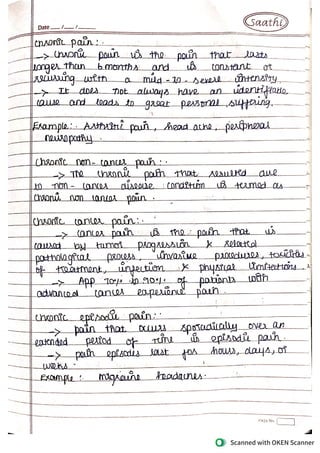 Saathi
Date ___/___/___
Chronic pain :-
-> Chronic pain is the pain that lasts
longer than 6 months and is constant or
recurring with a mild-to-severe intensity.
-> It does not always have an identifiable
cause and leads to great personal suffering.
Example:- Arthritic pain, head ache, peripheral
neuropathy.
Chronic non-cancer pain :-
-> The chronic pain that resulted due
to non-cancer disease condition is termed as
chronic non cancer pain.
Chronic cancer pain :-
-> Cancer pain is the pain that is
caused by tumor progression & related
pathological process, invasive procedures, toxicities
of treatment, infection & physical limitations.
-> App 70% to 90% of patients with
advanced cancer experience pain.
Chronic episodic pain :-
-> pain that occurs sporadically over an
extended period of time is episodic pain.
-> pain episodes last for hours, days, or
weeks.
Example : migraine headaches.
Page No.
Scanned with OKEN Scanner